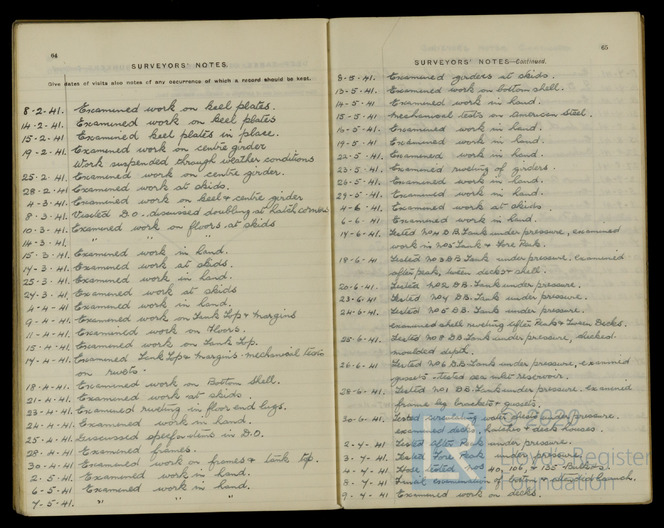 64
SURVEYORS' NOTES.
Give dates of visits also notes of any occurrence of which a record should be kept.
8-2-41. Examined work on keel plates.
14-2-41. Examined work on keel plates
15-2-41. Examined keel plates in place.
19-2-41. Examined work on centre girder
Work suspended through weather conditions
25-2-41. Examined work on centre girder.
28-2-41. Examined work at skids.
4-3-41. Examined work on keel & centre girder
8-3-41. Visited D.O. discussed doubling at hatch corners
10-3-41. Examined work on floors at skids
14-3-41. " "
15-3-41. Examined work in hand.
17-3-41. Examined work at skids.
25-3-41. Examined work in hand.
27-3-41. Examined work at skids
4-4-41. Examined work in hand.
9-4-41. Examined work on Tank Top & Margins
11-4-41. Examined work on Floors.
15-4-41. Examined work on Tank Top.
17-4-41. Examined Tank Top & Margins. mechanical tests
on rivets.
18-4-41. Examined work on Bottom Shell.
21-4-41. Examined work at skids.
23-4-41. Examined riveting in floor end lugs.
24-4-41. Examined work in hand.
25-4-41. Discussed specifications in D.O.
28-4-41. Examined frames.
30-4-41. Examined work on frames & tank top.
2-5-41. Examined work in hand.
6-5-41. Examined work in hand.
7-5-41. " "
65
SURVEYORS' NOTES—Continued.
8-5-41. Examined girders at skids.
13-5-41. Examined work on bottom shell.
14-5-41 Examined work in hand.
15-5-41 Mechanical tests on American Steel.
16-5-41. Examined work in hand.
19-5-41. Examined work in hand.
22-5-41. Examined work in hand.
23-5-41. Examined riveting of girders.
26-5-41. Examined work in hand.
29-5-41. Examined work in hand.
4-6-41. Examined work at skids.
6-6-41. Examined work in hand.
17-6-41. Tested No 4 D.B. Tank under pressure, examined
work in No 5 Tank & Fore Peak.
18-6-41. Tested No 3 D.B. Tank under pressure. Examined
after peak, tween decks & shell.
20-6-41. Tested No 2 D.B. Tank under pressure.
23-6-41 Tested No 4 D.B. Tank under pressure.
24-6-41. Tested No 5 D.B. Tank under pressure.
examined shell riveting after Peak & Tween Decks.
25-6-41. Tested No 8 D.B. Tank under pressure, checked
moulded depth.
26-6-41 Tested No 6 D.B. Tank under pressure, examined
gussets. Tested sea inlet reservoir.
28-6-41. Tested No 1 D.B. Tank under pressure. Examined
frame leg brackets & gussets.
30-6-41. Tested circulating water under pressure.
examined decks, hatches & deck houses.
2-7-41. Tested After Peak under pressure.
3-7-41. Tested Fore Peak under pressure.
4-7-41. Hose tested 40, 106, & 135 Bulk
8-7-41 Final examination of bottom & attended launch.
9-7-41 Examined work on decks.
© 2020
Lloyd's Register
Foundation